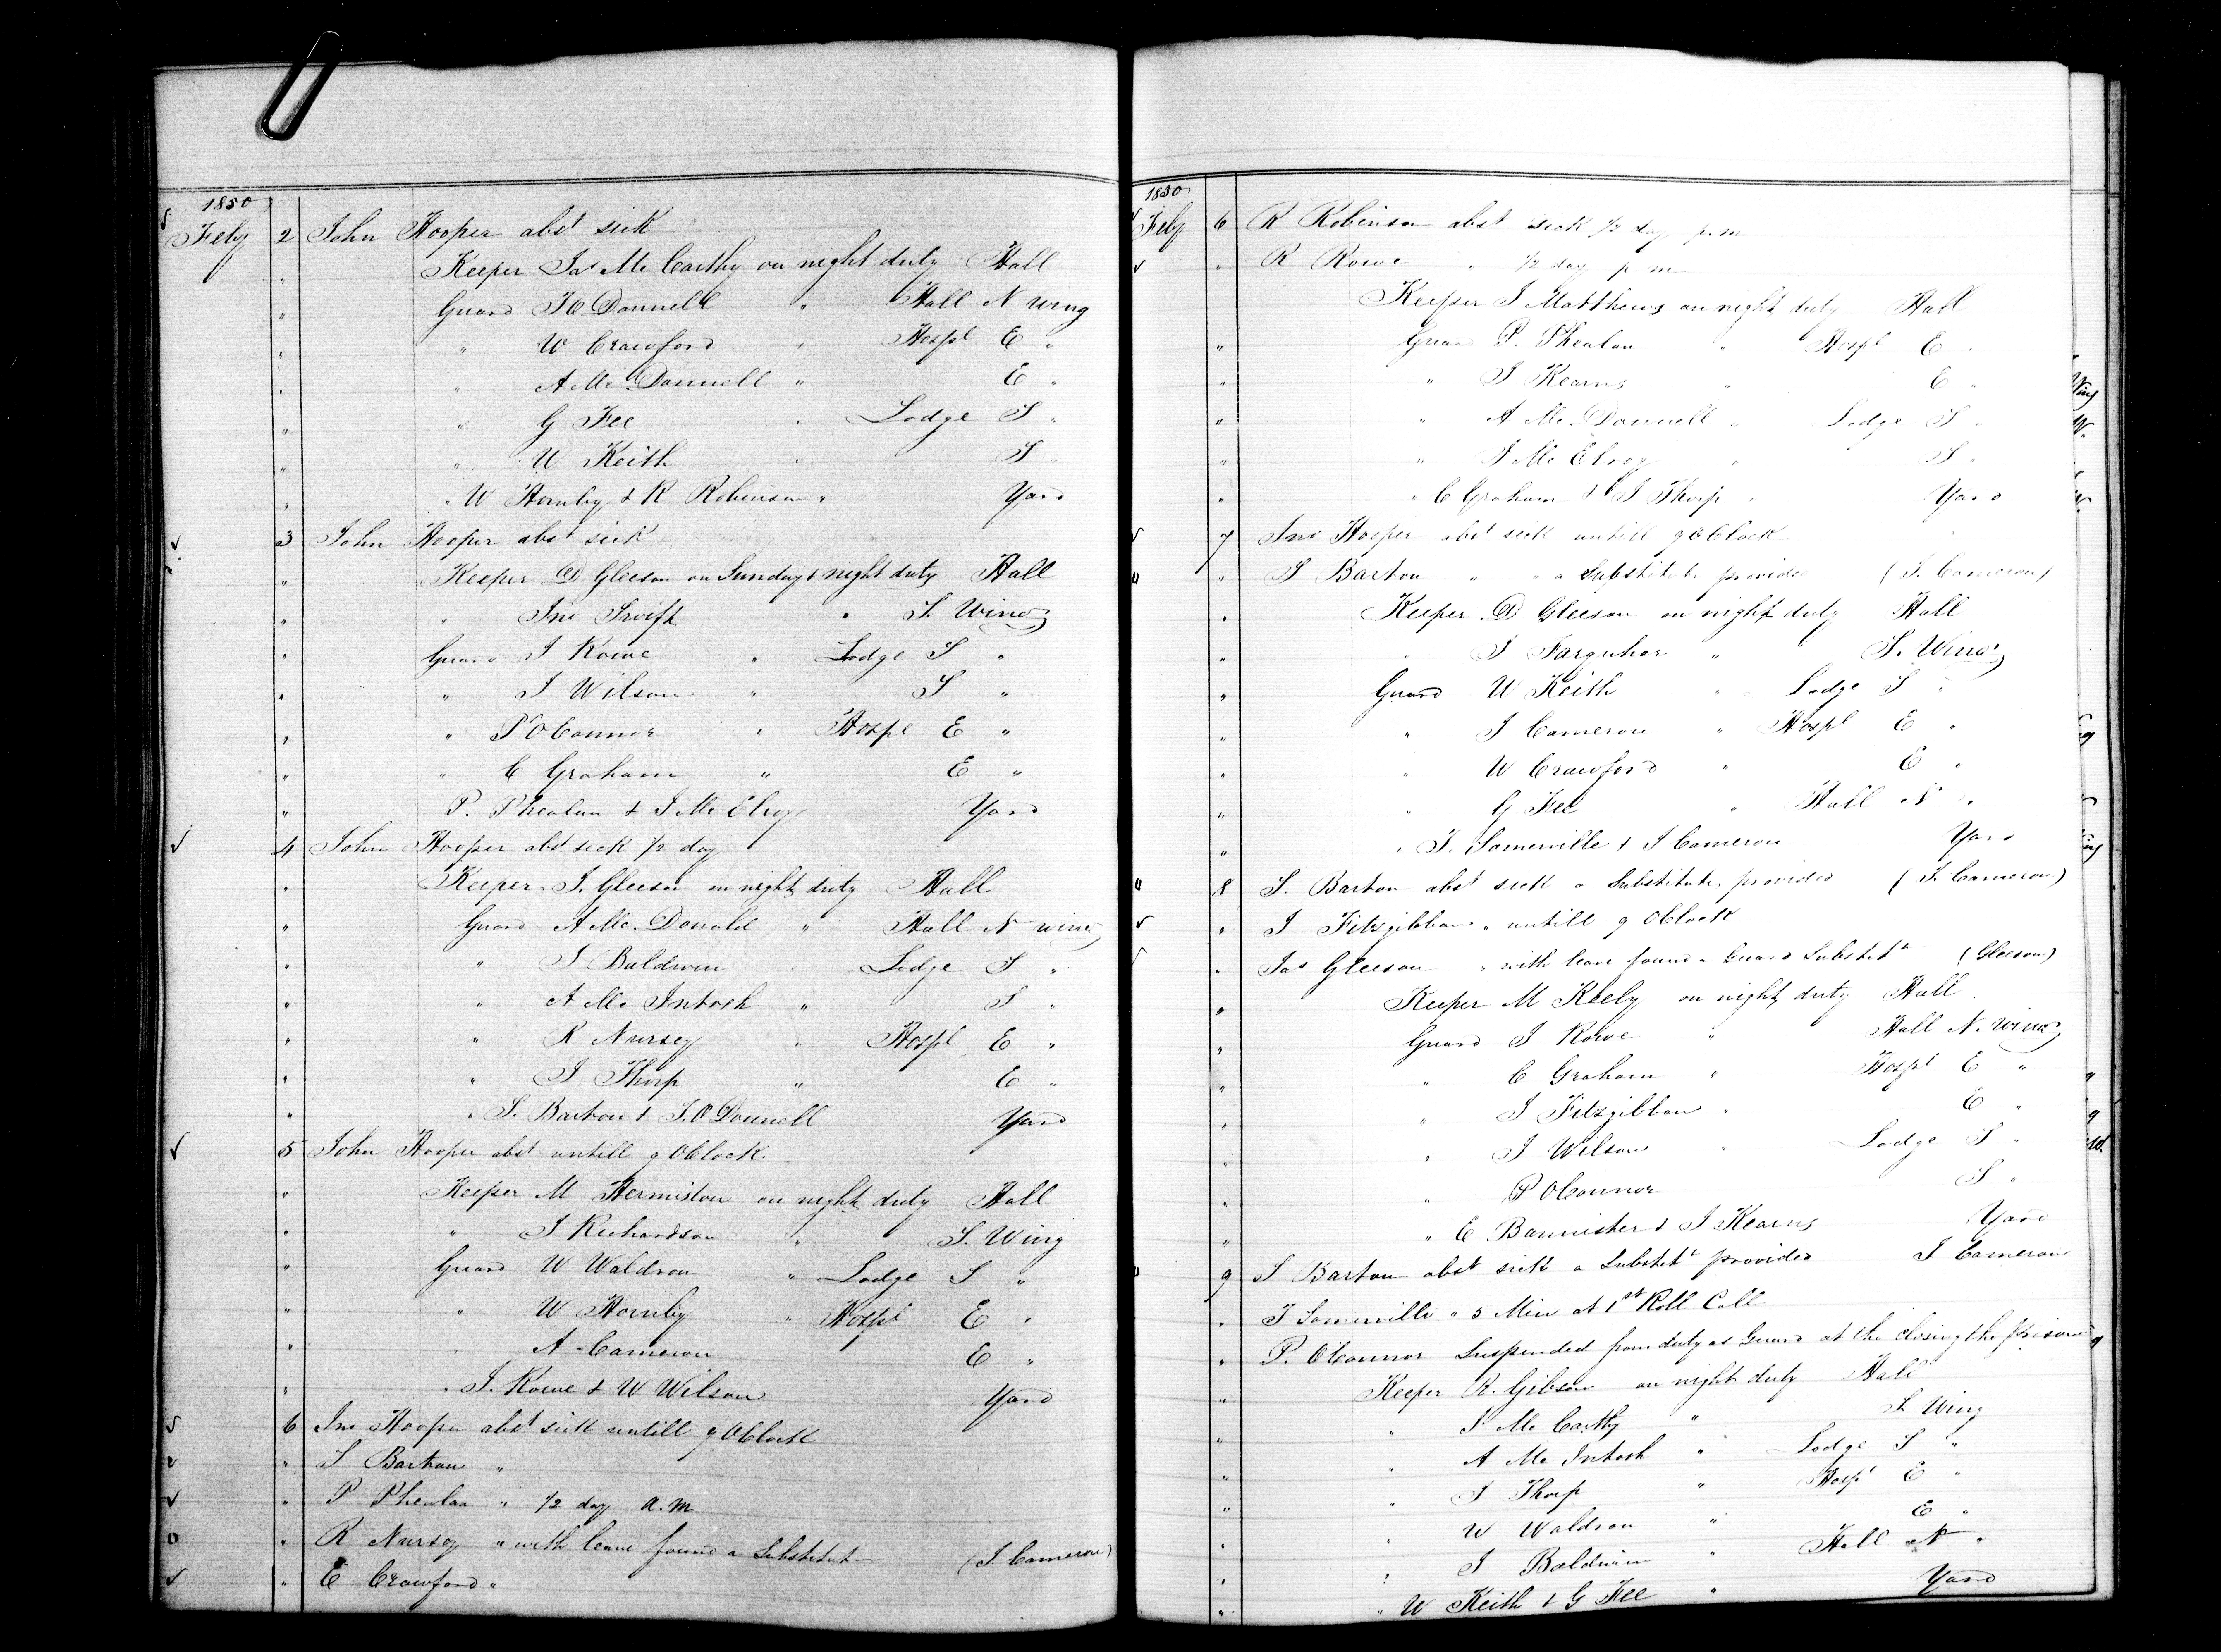 1850
Feby 2 John Hooper abst sick
" Keeper Jas Mc Carthy on night duty Hall
" Guard J O. Donnell " Hall N wing
" " W Crawford " Hospl E "
" " A Mc Donnell " E "
" " G Fee " Lodge S "
" " W Keith " S "
" " W Hornby & R Robinson " Yard
3 John Hooper abst sick
" Keeper D Gleeson on Sunday & night duty Hall
" " Jno Swift " S. Wing
" Guard J Rowe " Lodge S "
" " J Wilson " S "
" " P O Connor " Hospl E "
" " C Graham " E "
" P. Phealan & J Mc Elroy Yard
4 John Hooper abst sick 1/2 day
" Keeper J. Gleeson on night duty Hall
" Guard A Mc Donald " Hall N wing
" " J Baldwin " Lodge S "
" " A Mc Intosh " S "
" " R Nursey " Hospl E "
" " J Thorp " E "
" " S. Barton & J. O Donnell Yard
5 John Hooper abst untill 9 OClock
" Keeper M Hermiston on night duty Hall
" " J Richardson " S. Wing
" Guard W Waldron " Lodge S "
" " W Hornby " Hospl E "
" " A Cameron E "
" " J. Rowe & W Wilson Yard
6 Jno Hooper abst sick untill 9 OClock
" S Barton "
" P Phealan " 1/2 day a.m
" R Nursey " with leave found a Substitute (J. Cameron)
" E Crawford "
1850
Feby 6 R Robinson abst sick 1/2 day p.m
" R Rowe " 1/2 day p m
Keeper J Matthews on night duty Hall
" Guard P. Phealan " Hospl E "
" " J Kearns " E "
" " A Mc Donnell " Lodge S "
" " J Mc Elroy " S "
" " C Graham & J Thorp " Yard
7 Jno Hooper abst sick untill 9 OClock
" S Barton " " a Substitute provided (J. Cameron)
" Keeper D Gleeson on night duty Hall
" " J Farquhar " S. Wing
" Guard W Keith " Lodge S "
" " J Cameron " Hospl E "
" " W Crawford " E "
" " G Fee " Hall N "
" " J. Somerville & J Cameron Yard
8 S. Barton abst sick a Substitute provided (J. Cameron)
" J Fitzgibbon " untill 9 OClock
" Jas Gleeson " with leave found a Guard Substte (Gleeson)
" Keeper M Keely on night duty Hall
" Guard J Rowe " Hall N. wing
" " C Graham " Hospl E "
" " J Fitzgibbon " E "
" " J Wilson " Lodge S "
" " P OConnor S "
" " E Bannister & J Kearns Yard
9 S Barton abst sick a Substte provided J Cameron
" J Somerville " 5 Min at 1st Roll Call
" P. OConnor Suspended from duty as Guard at the closing the prison
" Keeper R. Gibson on night duty Hall
" " J Mc Carthy " S. Wing
" " A Mc Intosh " Lodge S "
" " J Thorp " Hospl E "
" " W Waldron " E "
" " J Baldwin " Hall N "
" " W Keith & G Fee " Yard